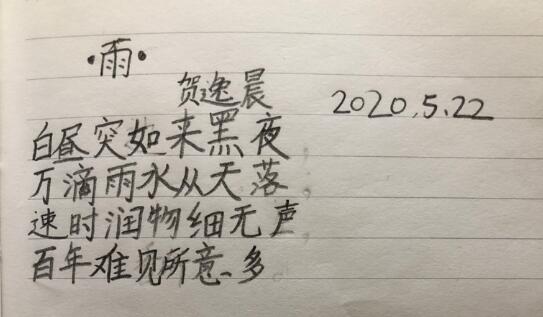 ·雨·
贺逸晨 2020.5.22
白昼突如来黑夜，
万滴雨水从天落。
速时润物细无声，
百年难见所意、多。